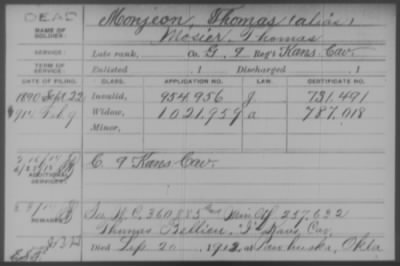 DEAD
NAME OF SOLDIER: Monjeon, Thomas (alias)
Mosier, Thomas
SERVICE: Late rank, Co. G, 9 Reg't Kans. Cav.
TERM OF SERVICE: Enlisted , 1 Discharged , 1
DATE OF FILING. CLASS. APPLICATION NO. LAW. CERTIFICATE NO.
1890 Sept. 22 Invalid, 954,956 J. 731,491
Feb. 9 Widow, 1,021,959 a 787,018
Minor,
ADDITIONAL SERVICES: C. 9 Kans Cav.
REMARKS: See W. C. 360,885 Min. Ctf. 257,632
Thomas Bellieu, "I" Kans. Cav.
Died Sep. 20 1912, at Pawhuska, Okla